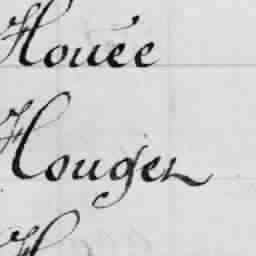 Houée
Houger
H